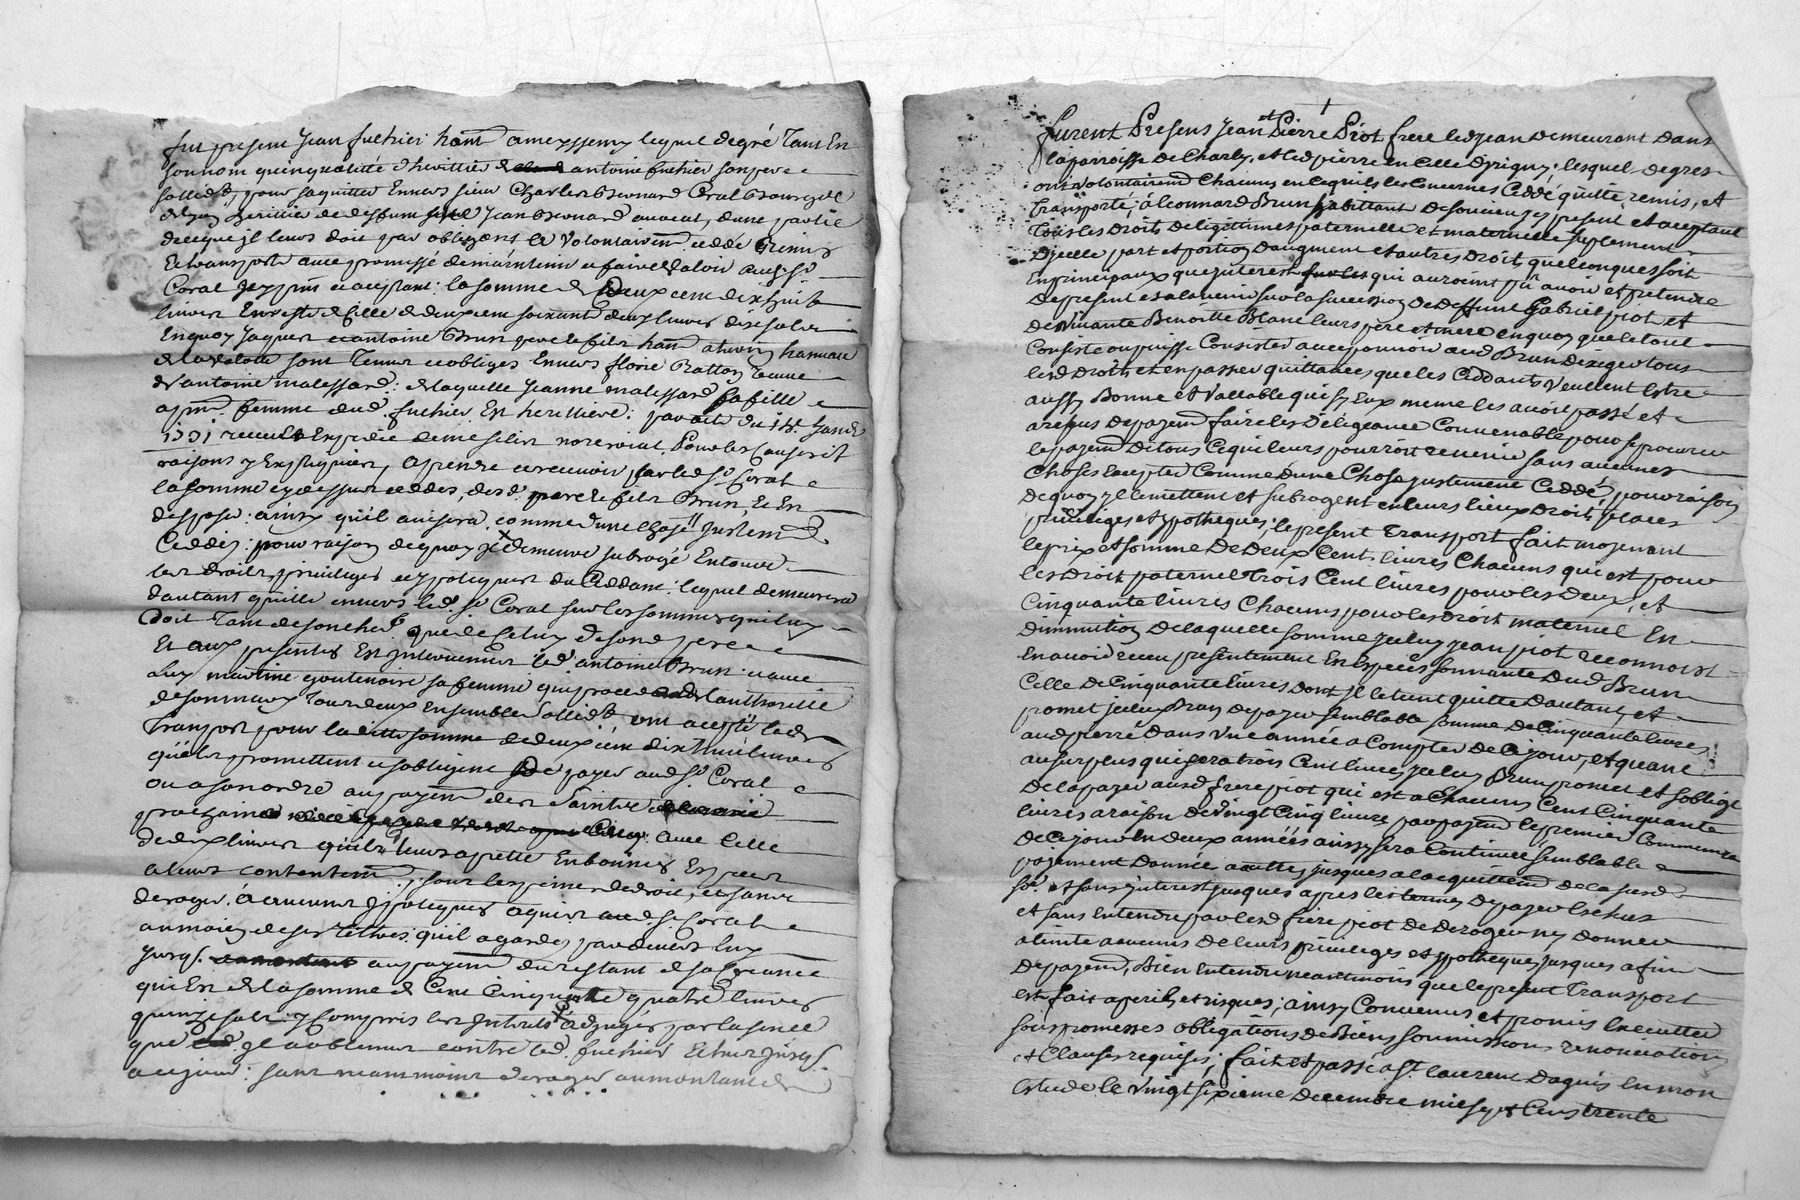 fut present Jean fuchier ham a meyssemy lequel de gré Tant En
son nom qu'en qualitté d'heritier antoine fuchier son pere
sollid.t pour s'aquitter Envers sieur Charles Bernard Coral Bourgois
de lyon heritier de deffunt Jean Bernard avocat, d'une partie
de ce que jl leurs doit par obligons a Volontairem ceddé Remis
Et transporté avec promesse de maintenir et faire Valoir aud s.r
Coral jcy pnt et aceptant : la somme de Deux cent dix huit
livres En reste de Celle de deux cent soixant deux livres dix sols
En quoy Jaques et antoine Brun pere et fils ham hameau
de la sont Tenus et obligés Envers florie Ratton veuve
d'antoine malessard : de laquelle Jeanne malessard sa fille
a pnt femme dud. fuchier Est heritiere : par acte du 14. Janv.
1731 receu et Expedié de me notre roial Pour les causes et
raisons y Expliquées, a prendre et recevoir par led s.r Coral
la somme cy dessus ceddée, desd. pere et fils Brun, Et En
disposer : ainsy qu'il avisera comme d'une chose justem
Ceddée : pour raison de quoy jl demeure subrogé En tous
les droits, privileges et ypoteques du Ceddant : lequel demeurera
d'autant quitte envers led. s.r Coral sur les sommes qu'il luy
Doit Tant de son chef que de Celuy de son d. pere
Et aux presentes Est jntervenus led. antoine Brun : avec
luy martine goutenoire sa femme qui procede de l'authorité
de son mary Tous deux Ensemble sollid.t ont acepté led.
Transport pour laditte somme de deux cent dix huit livres
qu'ils promettent et s'obligent de payer aud s.r Coral
ou a son ordre au payem des Saints
prochaine avec Celle
de dix livres qu'ils leurs a prette En bonnes Especes
a leurs contentem : sous les peines de droit, et sans
deroger, a aucunes ypoteques aquises aud. s.r Coral
au moien de ses Tittres : qu'il a gardés par devers luy
jusq. au payem du restant de sa Creance
qui Est de la somme de Cent Cinquante quatre livres
quinze sols y Compris les jnterets adjugés par la sence
que jl a obtenue contre led. fuchier Echus jusq.
a ce jour : sans neanmoins deroger au montant de
furent Presens Jean et Pierre Piot frere led Jean demeurant dans
la parroisse de Charly, et led pierre en celle d'yrigny ; lesquel de gres
ont volontairem Chacuns en ce qui les Concernes Ceddé quitte remis, et
Transporté, a leonnard Brun habittant de soucieu jcy present et aceptant
Tous les Droits de legitimes paternelle et maternelle suplement
D'jcelle part et portion d'augment et autres Droits quelconques soit
En principaux que jnterest qui auroient pu avoir et pretendre
de present et a l'avenir sur la succession de deffunt Gabriel piot et
de vivante Benoitte Blanc leurs pere et mere en quoy que le tout
Consiste ou puisse Consister avec pouvoir aud Brun d'exiger tous
lesd Droits et en passer quittances que les Ceddants veullent Estre
aussy Bonne et Vallable qui sy Eux meme les avoit passé et
a refus de payem faire les Deligeance Convenable pour se procurer
le payem de tous Ce qui leurs pourroit revenir sans aucunes
Choses Excepter Comme d'une Chose justement Ceddé, pour raison
de quoy jl le mettent et subrogent en leurs lieux Droits places
privileiges et ypotheques ; le present Transport fait mojenant
le prix et somme de Deux Cent livres Chacuns qui est pour
les Droit paternel trois Cent livres pour les deux, et
Cinquante livres Chacuns pour les Droit maternel En
Diminution de laquelle somme jceluy jean piot reconnoist
En avoir receu presentement En Especes sonnante dud Brun
Celle de Cinquante livres dont jl le tient quitte d'autant, et
promet jceluy Brun de payer semblable somme de Cinquante livres
aud pierre dans une année a Compter de Ce jour, et quant
au surplus qui sera trois Cent livres jceluy Brun promet et s'oblige
de la payer ausd frere piot qui est a Chacuns Cent Cinquante
livres a raison de Vingt Cinq livres par payem le premier Commence
de Ce jour En deux années ainsy sera Continuer semblable
pajement d'année a autre, jusques a l'acquittem de la susd
S.e et sans jnterest jusques apres les termes de payer Echus
et sans Entendre par lesd frere piot de deroger ny donner
atinte a aucuns de leurs privileiges et ypotheques jusques a fin
de payem, Bien Entendu neantmoins que le present Transport
est fait a perils et risques ; ainsy Convenus et promis Executter
sous promesses obligations de Biens soumissions renonciations
et Clauses requises ; fait et passé a St laurent dagnis En mon
Estude le vingt sixieme decembre mil sept Cens trente